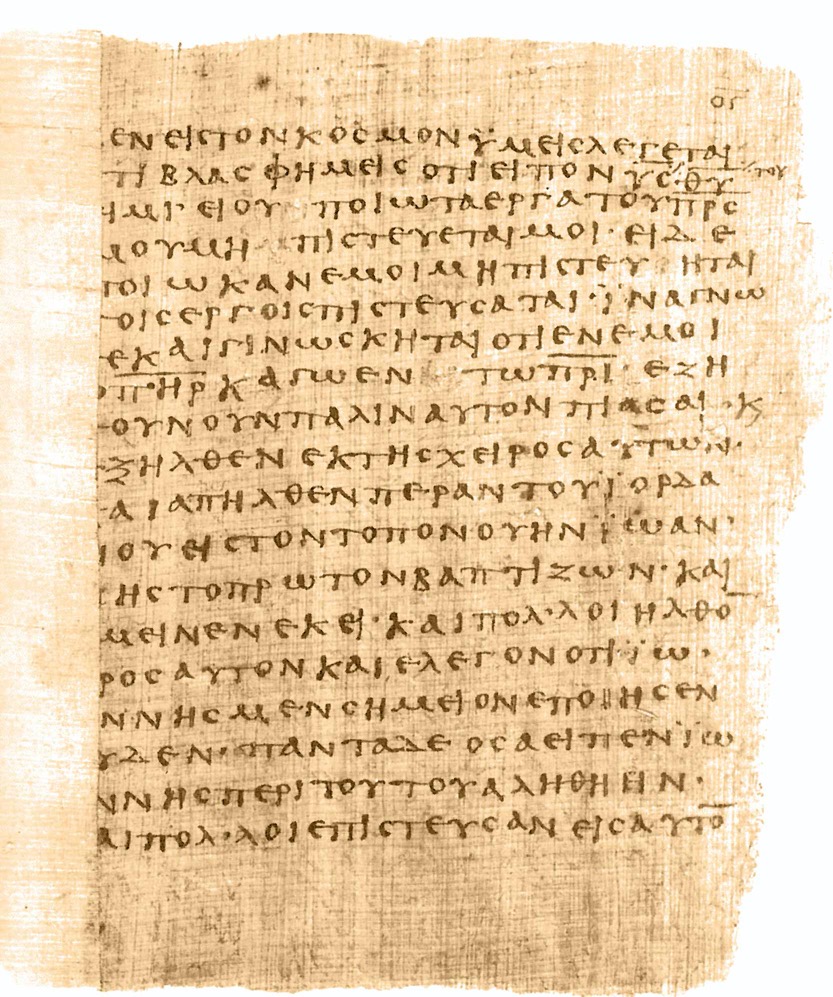 ος
ΕΝ ΕΙΣ ΤΟΝ ΚΟΣΜΟΝ ΫΜΕΙΣ ΛΕΓΕΤΑΙ
ΤΙ ΒΛΑΣΦΗΜΕΙΣ ΟΤΙ ΕΙΠΟΝ Υ̅Σ̅ ΘΥ̅ ΤΟΥ
ΙΜΙ ΕΙ ΟΥ ΠΟΙΩ ΤΑ ΕΡΓΑ ΤΟΥ Π̅Ρ̅Σ̅
ΜΟΥ ΜΗ ΠΙΣΤΕΥΕΤΑΙ ΜΟΙ· ΕΙ ΔΕ
ΠΟΙΩ ΚΑΝ ΕΜΟΙ ΜΗ ΠΙΣΤΕΥΗΤΑΙ
ΤΟΙΣ ΕΡΓΟΙΣ ΠΙΣΤΕΥΣΑΤΑΙ· ΪΝΑ ΓΝΩ
ΤΕ ΚΑΙ ΓΙΝΩΣΚΗΤΑΙ ΟΤΙ ΕΝ ΕΜΟΙ
Ο Π̅Η̅Ρ̅ ΚΑΓΩ ΕΝ ΤΩ Π̅Ρ̅Ι̅ ΕΖΗ
ΤΟΥΝ ΟΥΝ ΠΑΛΙΝ ΑΥΤΟΝ ΠΙΑΣΑΙ· Κ
ΕΞΗΛΘΕΝ ΕΚ ΤΗΣ ΧΕΙΡΟΣ ΑΥΤΩΝ·
ΚΑΙ ΑΠΗΛΘΕΝ ΠΕΡΑΝ ΤΟΥ ΪΟΡΔΑ
ΝΟΥ ΕΙΣ ΤΟΝ ΤΟΠΟΝ ΟΥ ΗΝ ΪΩΑΝ
ΝΗΣ ΤΟ ΠΡΩΤΟΝ ΒΑΠΤΙΖΩΝ· ΚΑΙ
ΕΜΕΙΝΕΝ ΕΚΕΙ· ΚΑΙ ΠΟΛ·ΛΟΙ ΗΛΘΟ̅
ΠΡΟΣ ΑΥΤΟΝ ΚΑΙ ΕΛΕΓΟΝ ΟΤΙ ΪΩ·
ΑΝΝΗΣ ΜΕΝ ΣΗΜΕΙΟΝ ΕΠΟΙΗΣΕΝ
ΟΥΔΕΝ· ΠΑΝΤΑ ΔΕ ΟΣΑ ΕΙΠΕΝ ΪΩ
ΑΝΝΗΣ ΠΕΡΙ ΤΟΥΤΟΥ ΑΛΗΘΗ ΗΝ·
ΚΑΙ ΠΟΛ·ΛΟΙ ΕΠΙΣΤΕΥΣΑΝ ΕΙΣ ΑΥΤΟ̅